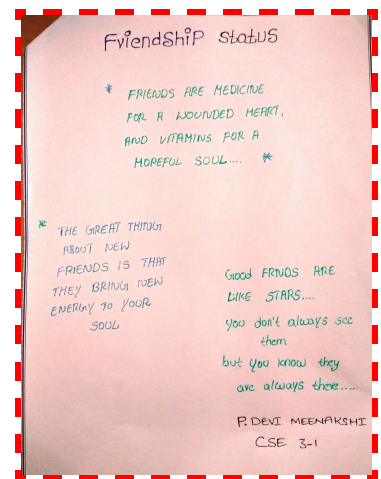 Friendship Status
* FRIENDS ARE MEDICINE
FOR A WOUNDED HEART,
AND VITAMINS FOR A
HOPEFUL SOUL.... *
* THE GREAT THING
ABOUT NEW
FRIENDS IS THAT
THEY BRING NEW
ENERGY TO YOUR
SOUL
Good FRNDS ARE
LIKE STARS....
you don't always see
them
but you know they
are always there.....
P. DEVI MEENAKSHI
CSE 3-1